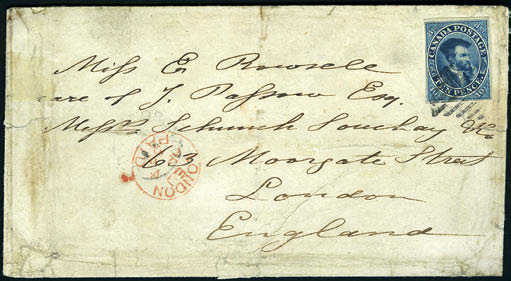 CANADA POSTAGE
TEN PENCE
Miss E Rowsele
care of J. Passow Esq.
Messrs Schunck Souchay &Co
63 Moorgate Street
London
England
LONDON
PAID